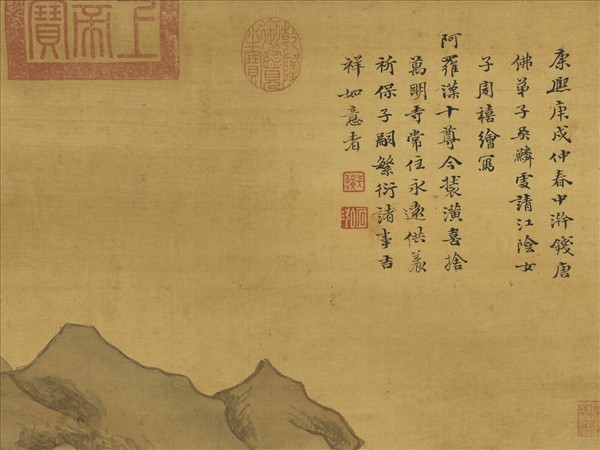 上
帝
寶
乾隆
御覽
之寶
康熙庚戌仲春中澣錢唐
佛弟子吳鱗虔請江陰女
子周禧繪寫
阿羅漢十尊今裝潢喜捨
萬明寺常住永遠供養
祈保子嗣繁衍諸事吉
祥如意者